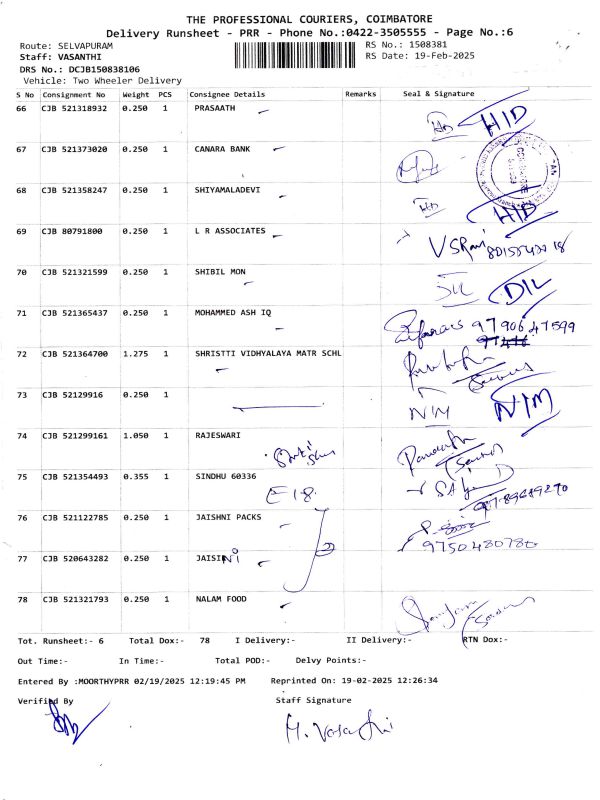 THE PROFESSIONAL COURIERS, COIMBATORE
Delivery Runsheet - PRR - Phone No.:0422-3505555 - Page No.:6
Route: SELVAPURAM RS No.: 1508381
Staff: VASANTHI RS Date: 19-Feb-2025
DRS No.: DCJB150838106
Vehicle: Two Wheeler Delivery
S No Consignment No Weight PCS Consignee Details Remarks Seal & Signature
66 CJB 521318932 0.250 1 PRASAATH HID
67 CJB 521373020 0.250 1 CANARA BANK
68 CJB 521358247 0.250 1 SHIYAMALADEVI HID
69 CJB 80791800 0.250 1 L R ASSOCIATES
70 CJB 521321599 0.250 1 SHIBIL MON DIL
71 CJB 521365437 0.250 1 MOHAMMED ASH IQ 97906 47599
72 CJB 521364700 1.275 1 SHRISTTI VIDHYALAYA MATR SCHL
73 CJB 52129916 0.250 1 NIM NIM
74 CJB 521299161 1.050 1 RAJESWARI
75 CJB 521354493 0.355 1 SINDHU 60336
E18
76 CJB 521122785 0.250 1 JAISHNI PACKS
77 CJB 520643282 0.250 1 JAISINI
78 CJB 521321793 0.250 1 NALAM FOOD
Tot. Runsheet:- 6 Total Dox:- 78 I Delivery:- II Delivery:- RTN Dox:-
Out Time:- In Time:- Total POD:- Delvy Points:-
Entered By :MOORTHYPRR 02/19/2025 12:19:45 PM Reprinted On: 19-02-2025 12:26:34
Verified By Staff Signature